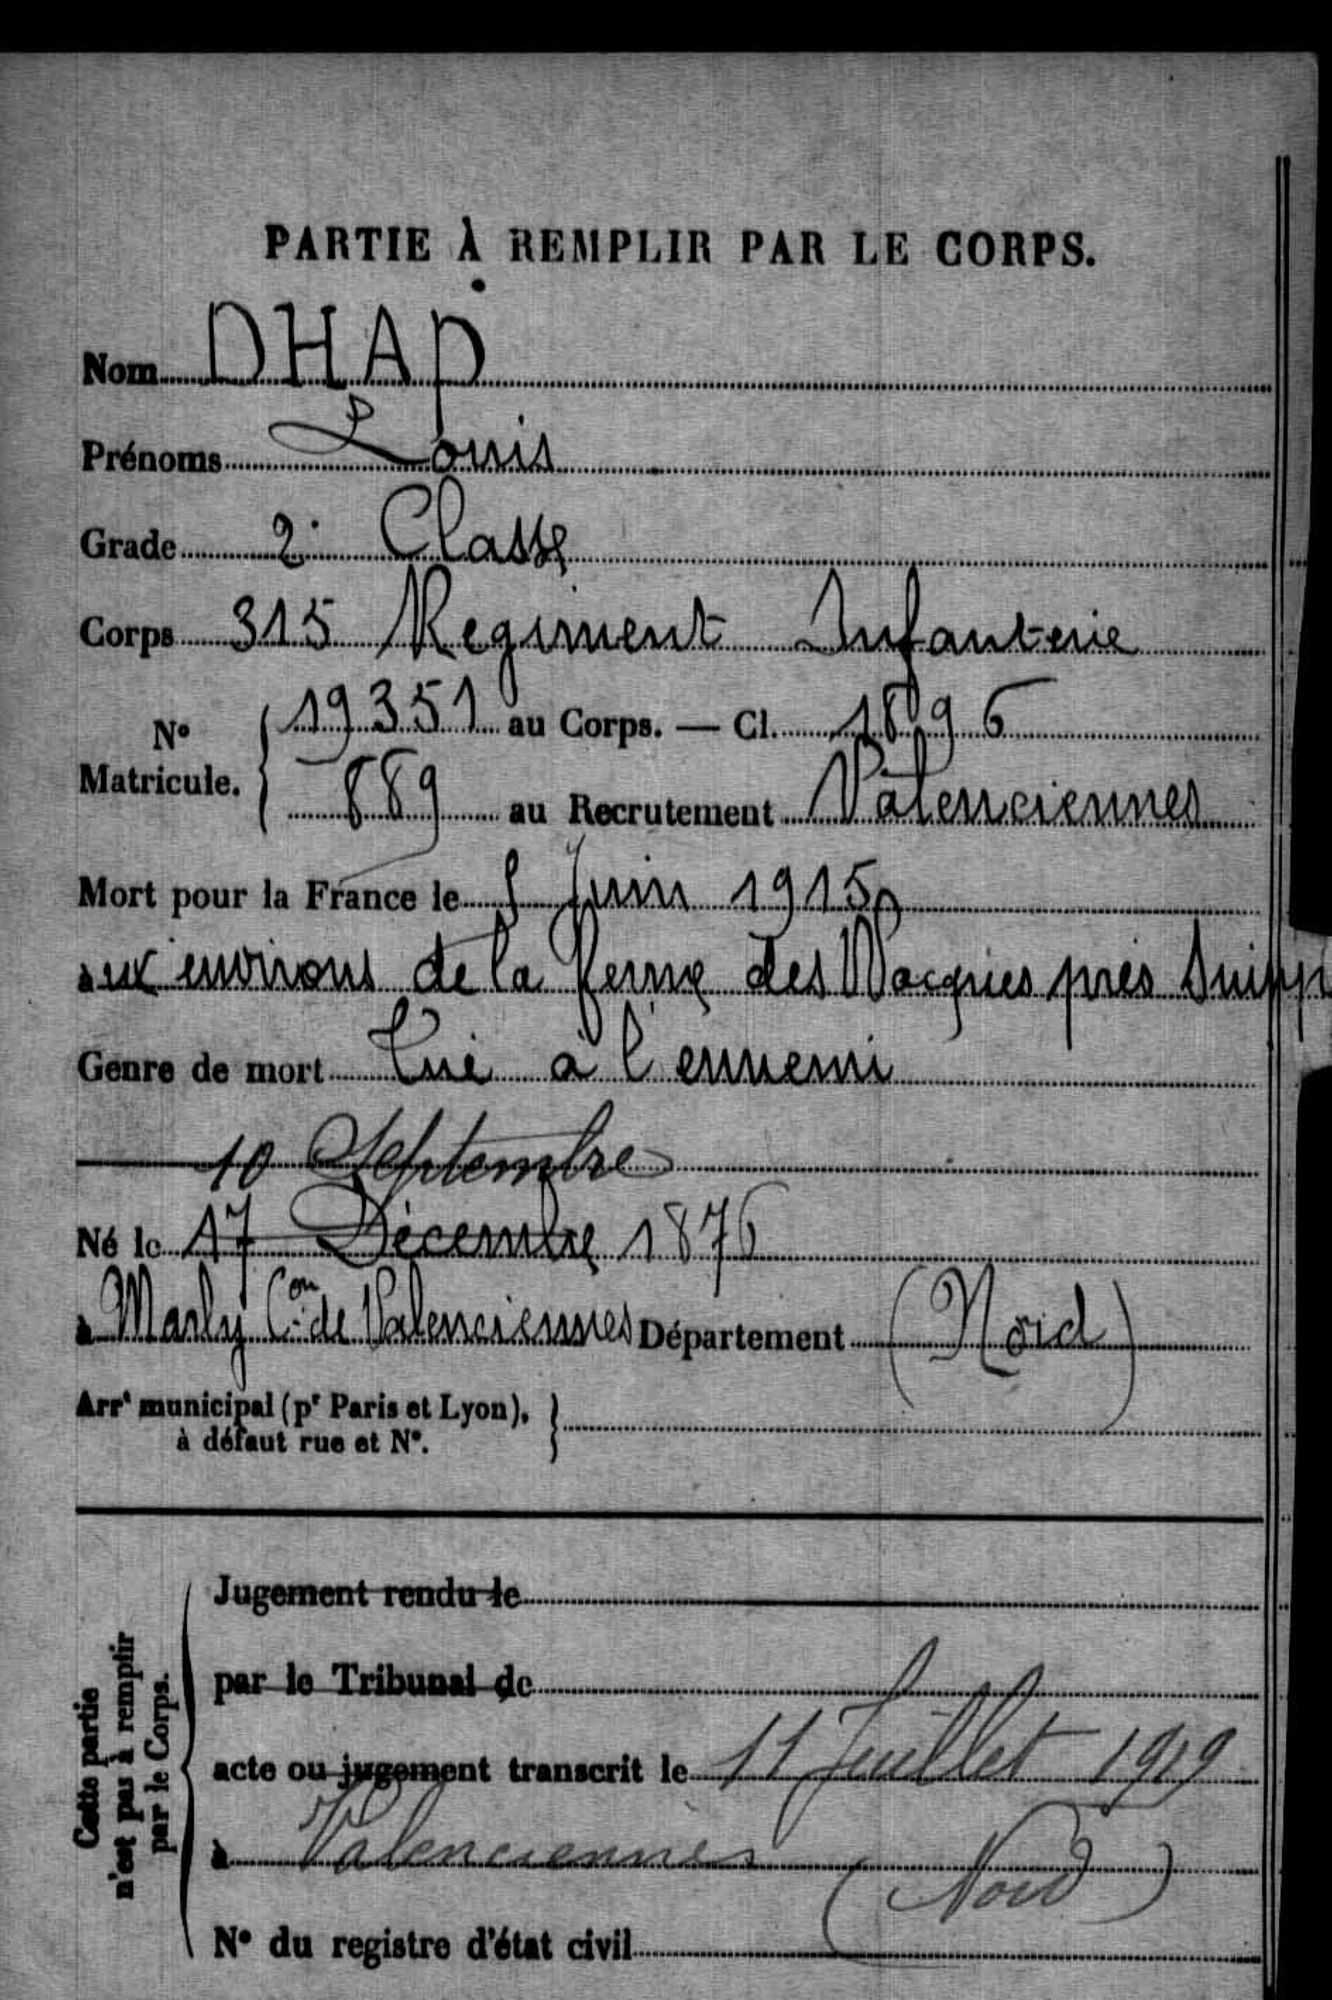 PARTIE À REMPLIR PAR LE CORPS.
Nom DHAP
Prénoms Louis
Grade 2e Classe
Corps 315 Regiment Infanterie
N° Matricule. { 19351 au Corps. — Cl. 1896
889 au Recrutement Valenciennes
Mort pour la France le Juin 1915
aux environs de la ferme des Wacques près Suipp
Genre de mort Tué à l'ennemi
10 Septembre
Né le 17 Décembre 1876
à Marly Con de Valenciennes Département (Nord)
Arrt municipal (pr Paris et Lyon), }
à défaut rue et N°.
Cette partie
n'est pas à remplir
par le Corps.
Jugement rendu le
par le Tribunal de
acte ou jugement transcrit le 11 Juillet 1919
à Valenciennes (Nord)
N° du registre d'état civil